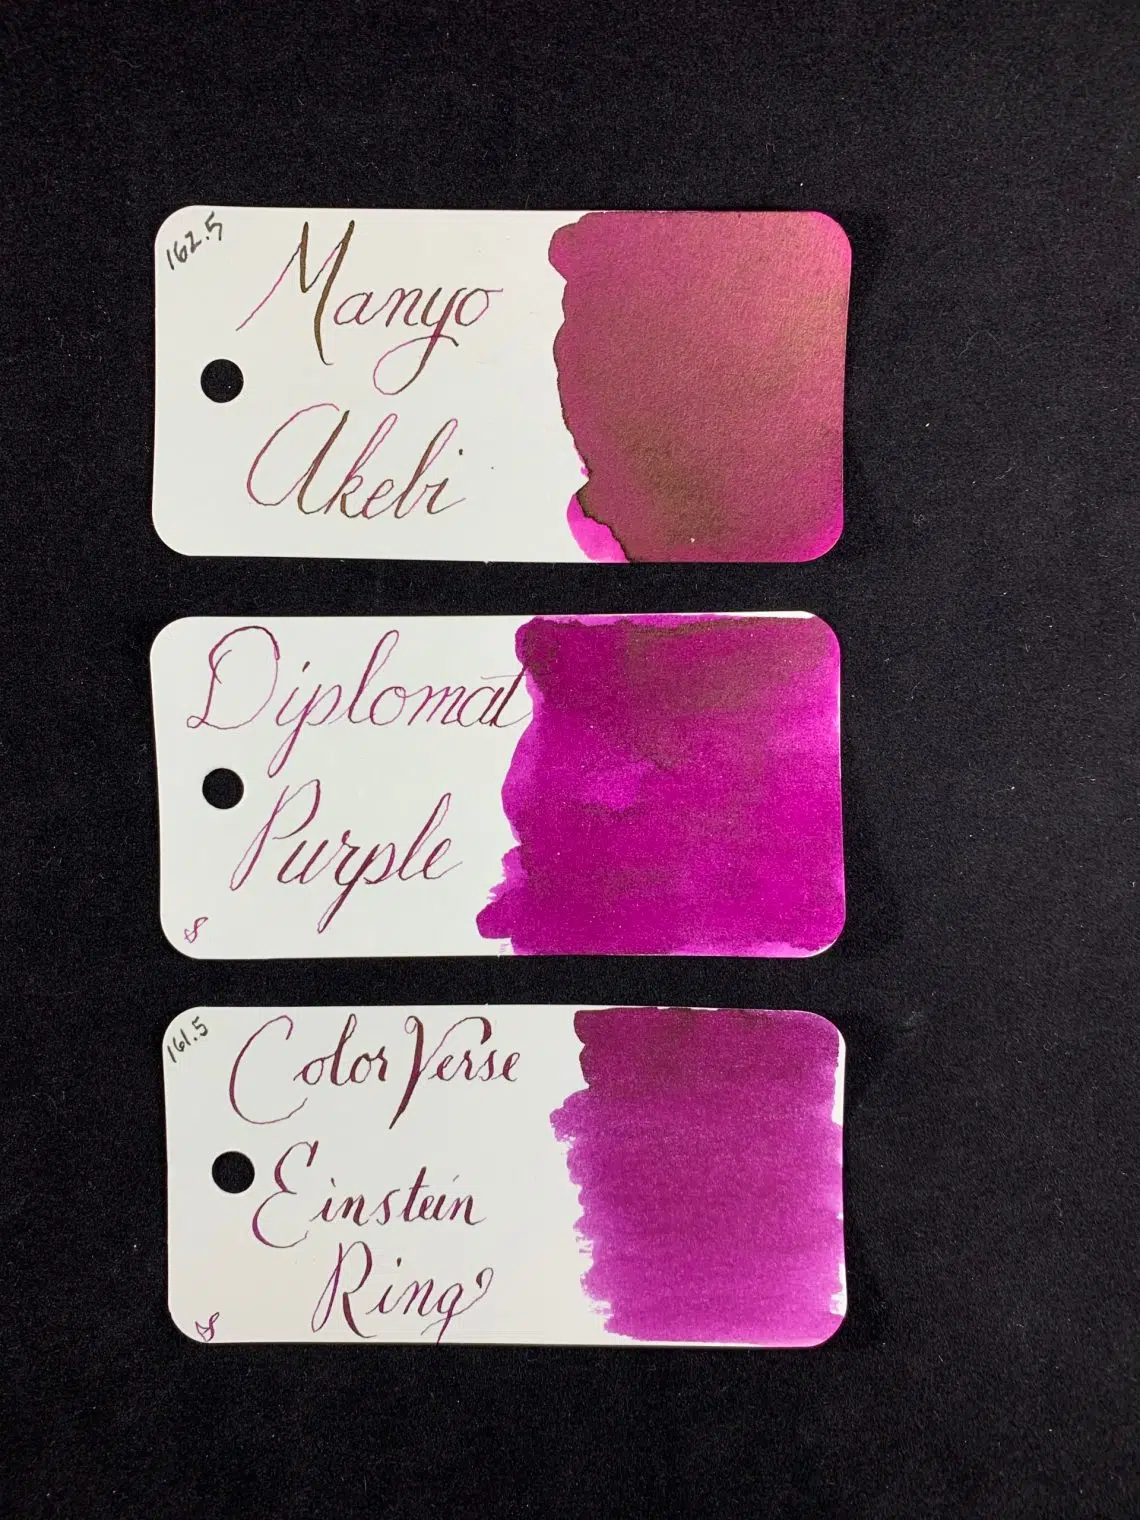 162.5
Manyo
Akebi
Diplomat
Purple
161.5
ColorVerse
Einstein
Ring